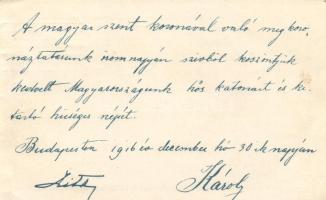 A magyar szent koronával való megkoro-
náztatásunk örömnapján szívből köszöntjük
kedvelt Magyarországunk hős katonáit és ki-
tartó hűséges népét.
Budapesten 1916 év december hó 30.-ik napján
Zita
Károly